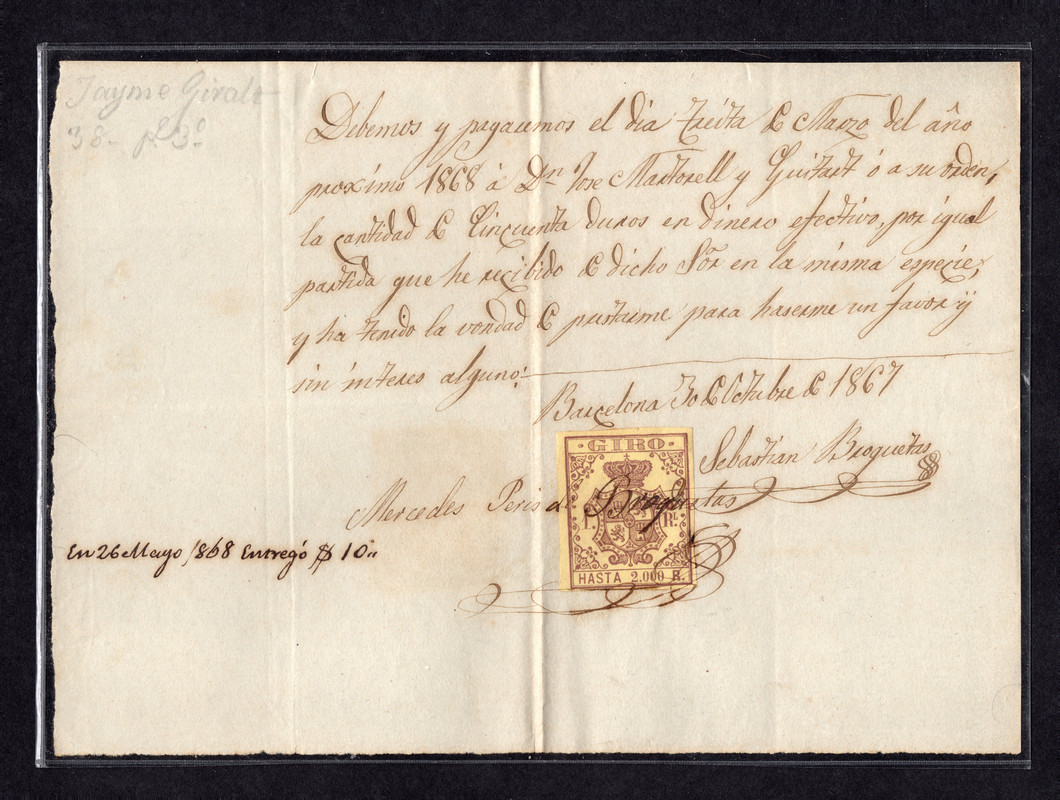 Jayme Giralt
38- pl 3º
Debemos y pagaremos el dia treita de Marzo del año
procximo 1868 á Dn. Jose Martorell y Guitart ó a su orden,
la cantidad de Cincuenta duros en dinero efectivo, por igual
partida que he recibido de dicho Sor en la misma especie,
y ha tenido la vondad de prestarme para haserme un favor ÿ
sin interes alguno:
Barcelona 30 de Octubre de 1867
GIRO
Sebastian Broquetas
Mercedes Peris de Broquetas
1. Rl.
En 26 Mayo 1868 Entregó $ 10
HASTA 2.000 R.